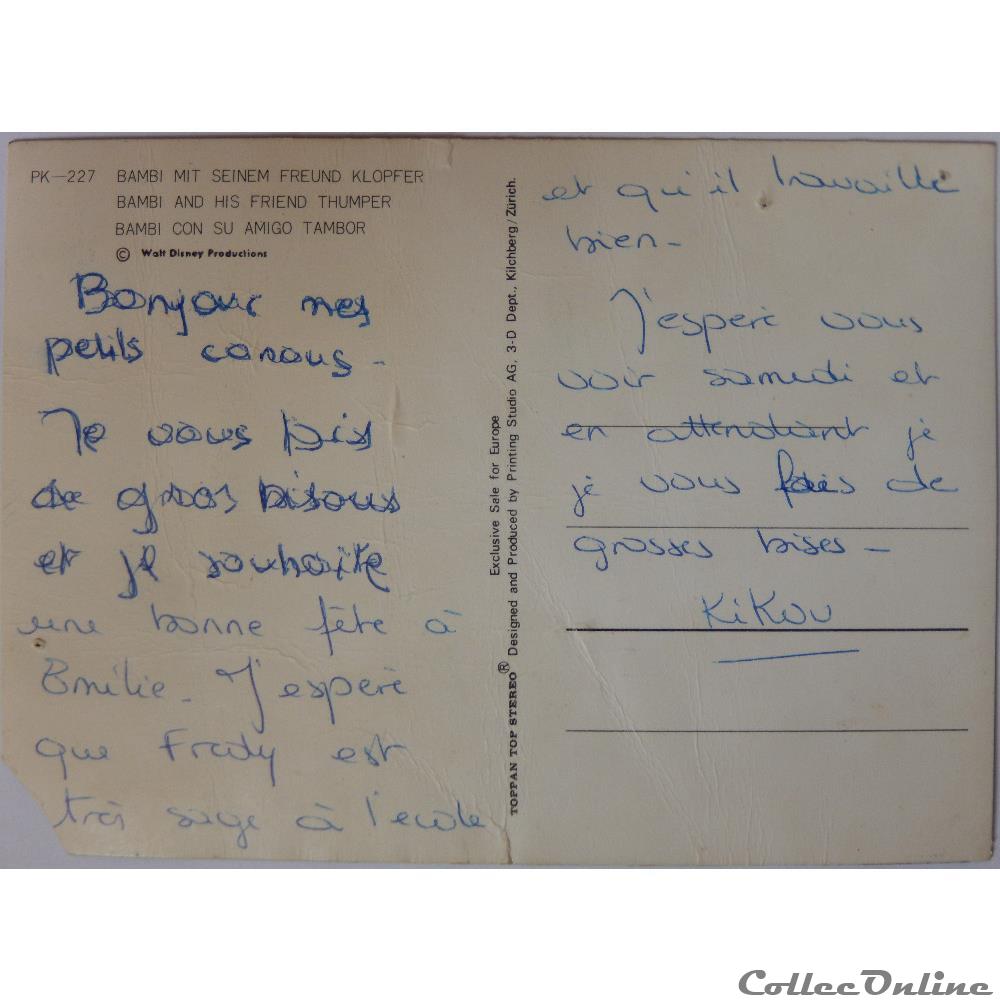 PK—227 BAMBI MIT SEINEM FREUND KLOPFER
BAMBI AND HIS FRIEND THUMPER
BAMBI CON SU AMIGO TAMBOR
© Walt Disney Productions
Bonjour mes
petits
Je vous
de gros bisous
et je souhaite
une bonne fête à
Emilie. J'espere
que Fredy est
très sage à l'ecole
Exclusive Sale for Europe
TOPPAN TOP STEREO® Designed and Produced by Printing Studio AG, 3-D Dept., Kilchberg/Zürich.
et qu'il travaille
bien-
J'espere vous
voir samedi et
en attendant je
je vous fais de
grosses bises-
KiKou
CollecOnline